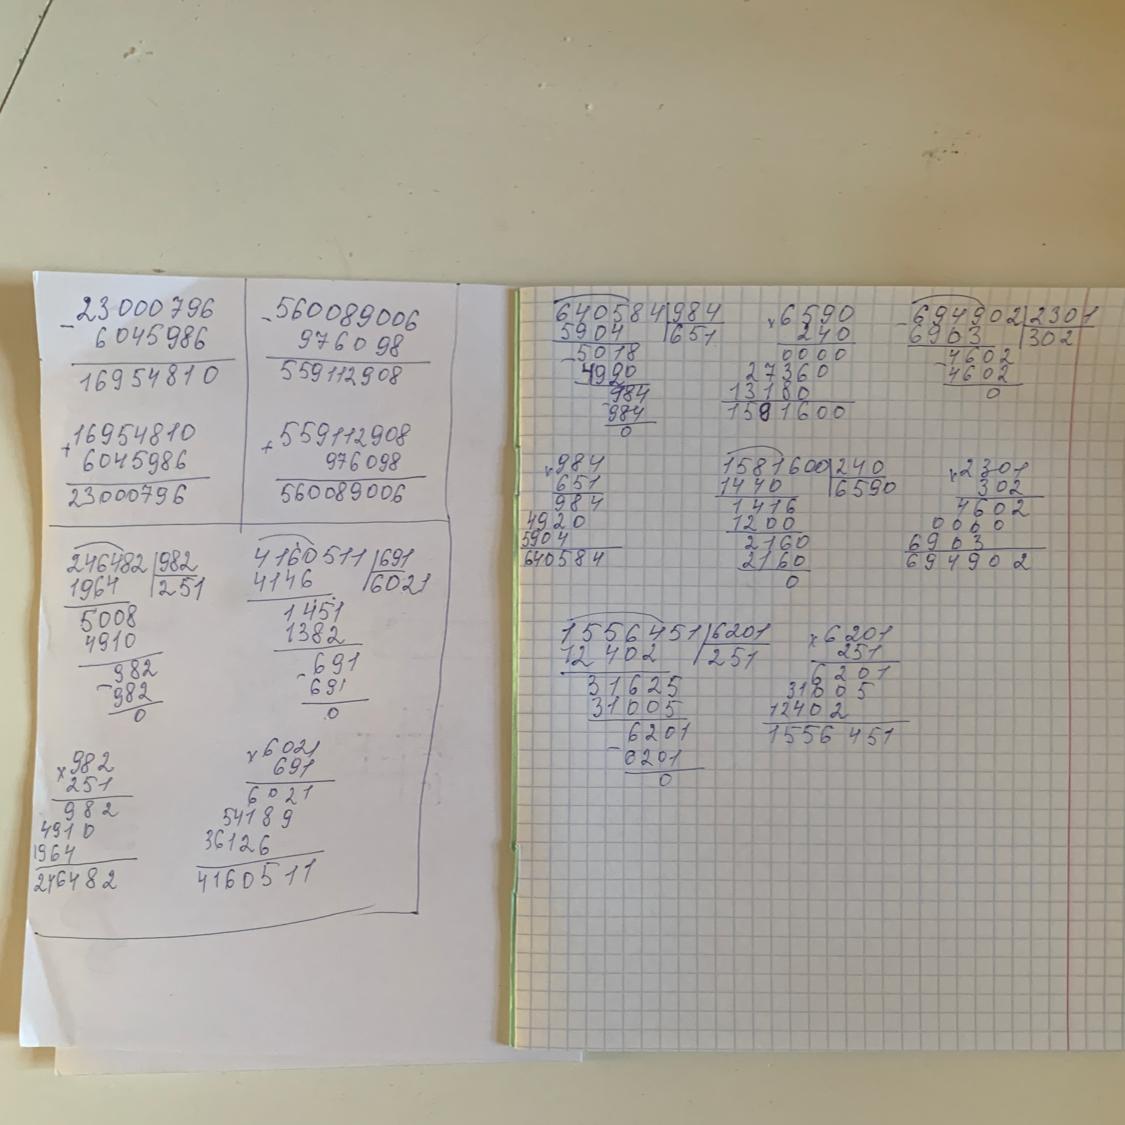 -23000796
6045986
16954810
+16954810
6045986
23000796
-560089006
976098
559112908
+559112908
976098
560089006
246482|982
1964 |251
5008
4910
982
-982
0
4160511|691
4146 |6021
1451
1382
691
-691
0
x982
251
982
4910
1964
246482
x6021
691
6021
54189
36126
4160511
640584|984
5904 |651
-5018
4990
984
-984
0
x6590
240
0000
27360
13180
1581600
-694902|2301
6903 |302
-4602
4602
0
x984
651
984
4920
5904
640584
1581600|240
1440 |6590
1416
1200
2160
2160
0
x2301
302
4602
0000
6903
694902
1556451|6201
12402 |251
31625
31005
6201
-6201
0
x6201
251
6201
31005
12402
1556451